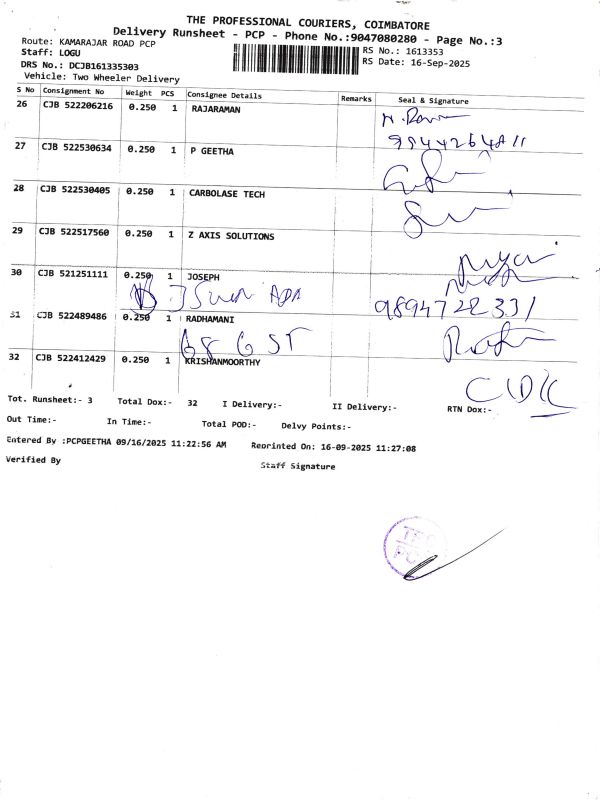 THE PROFESSIONAL COURIERS, COIMBATORE
Delivery Runsheet - PCP - Phone No.:9047080280 - Page No.:3
Route: KAMARAJAR ROAD PCP
RS No.: 1613353
Staff: LOGU
RS Date: 16-Sep-2025
DRS No.: DCJB161335303
Vehicle: Two Wheeler Delivery
S No Consignment No Weight PCS Consignee Details Remarks Seal & Signature
26 CJB 522206216 0.250 1 RAJARAMAN
27 CJB 522530634 0.250 1 P GEETHA
28 CJB 522530405 0.250 1 CARBOLASE TECH
29 CJB 522517560 0.250 1 Z AXIS SOLUTIONS
30 CJB 521251111 0.250 1 JOSEPH
9894722331
31 CJB 522489486 0.250 1 RADHAMANI
68 GST
32 CJB 522412429 0.250 1 KRISHANMOORTHY
Tot. Runsheet:- 3 Total Dox:- 32 I Delivery:- II Delivery:- RTN Dox:-
Out Time:- In Time:- Total POD:- Delvy Points:-
Entered By :PCPGEETHA 09/16/2025 11:22:56 AM Reprinted On: 16-09-2025 11:27:08
Verified By Staff Signature